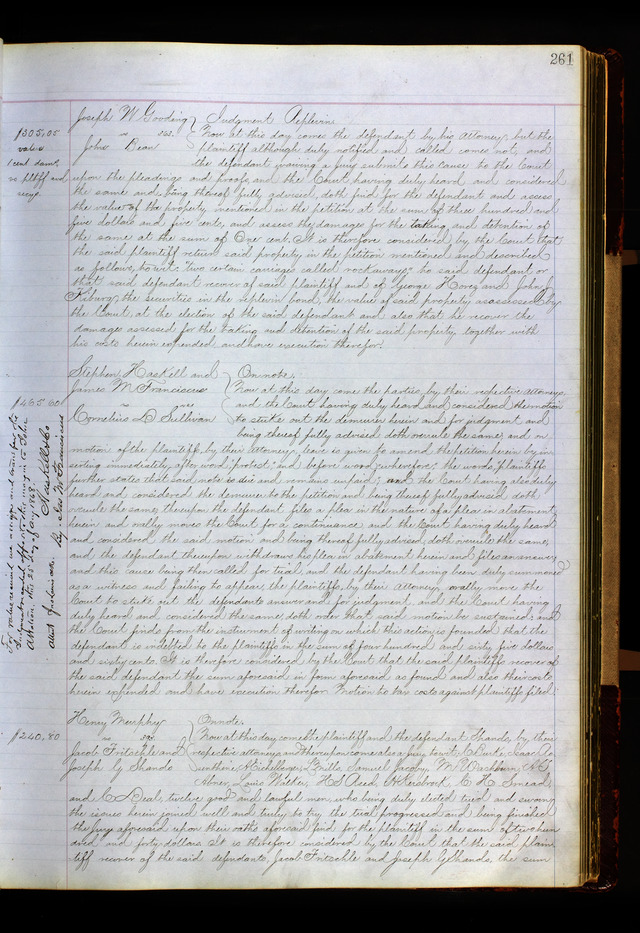 261
Joseph W Gooding } Judgment Replevin
vs. Now at this day comes the defendant by his Attorney but the
John Bean plaintiff although duly notified and called comes not, and
the defendant waiving a jury submits this cause to the Court
upon the pleadings and proofs, and the Court having duly heard and considered
the same and being thereof fully advised, doth find for the defendant and assess
the value of the property mentioned in the petition at the sum of three hundred and
five dollars and five cents, and assess the damages for the taking, and detention of
the same at the sum of One cent. It is therefore considered by the Court that
the said plaintiff return said property in the petition mentioned and described
as follows, to wit: "two certain carriages called rockaways" to said defendant or
that said defendant recover of said plaintiff and of George Hovey and John J
the securities in the replevin bond, the value of said property as assessed by
the Court, at the election of the said defendant and also that he recover the
damages assessed for the taking and detention of the said property together with
his costs herein expended and have execution therefor.
$305,05
value
1 cent dam.
vs pltff and
Stephen Haskell and } On note.
James M Franciscus Now at this day come the parties, by their respective attorneys
vs and the Court having duly heard and considered the motion
Cornelius D Sullivan to strike out the demurrer herein and for judgment and
being thereof fully advised doth overrule the same, and on
motion of the plaintiffs, by their Attorney, leave is given to amend the petition herein by in-
serting immediately after word "protest" and before word "wherefore" the words "plaintiffs
further states that said note is due and remains unpaid", and the Court having also duly
heard and considered the demurrer to the petition and being thereof fully advised doth
overrule the same, thereupon the defendant files a plea in the nature of a plea in abatement
herein and orally moves the Court for a continuance and the Court having duly heard
and considered the said motion and being thereof fully advised, doth overrule the same,
and the defendant thereupon withdraws his plea in abatement herein and files an answer
and this cause being then called for trial, and the defendant having been duly summoned
as a witness and failing to appear, the plaintiffs, by their Attorney, orally move the
Court to strike out the defendants answer and for judgment and the Court having
duly heard and considered the same, doth order that said motion be sustained, and
the Court finds from the instrument of writing on which this action is founded that the
defendant is indebted to the plaintiffs in the sum of four hundred and sixty five dollars
and sixty cents. It is therefore considered by the Court that the said plaintiffs recover of
the said defendant the sum aforesaid in form aforesaid as found and also their costs
herein expended and have execution therefor. Motion to tax costs against plaintiff filed.
$465,60
For value received we assign and transfer the
Judgment entered opposite this margin to John
this 21st day of 1868.
Haskell & Co
By Jas. M Franciscus
Attest
Henry Murphy } On note.
vs Now at this day come the plaintiff and the defendant Shands, by their
Jacob Fritschle and respective attorneys and thereupon come also a jury to wit: C Burke, Isaac A
Joseph G Shands Samuel Jacoby, M V Washburn, N G
Abner, Louis Wester, H S Reed, C H Smead,
and Deal, twelve good and lawful men, who being duly elected tried and sworn
the issues herein joined well and truly to try, the trial progressed and being finished
the jury aforesaid upon their oaths aforesaid find for the plaintiff in the sum of two hun
dred and forty dollars. It is therefore considered by the Court that the said plain
tiff recover of the said defendants, Jacob Fritschle and Joseph G Shands, the sum
$240,80